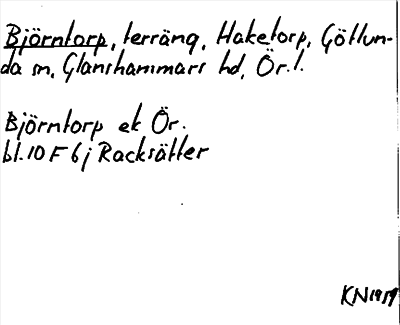 Björntorp, terräng, Haketorp, Götlun-
da sn, Glanshammars hd, Ör. l.
Björntorp ek Ör.
bl. 10 F 6 j Racksätter
KN 1959